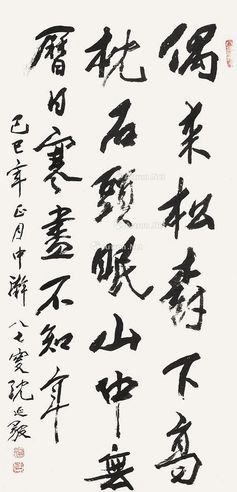 偶来松樹下高
枕石頭眠山中無
曆日寒盡不知年
己巳年正月中澣 八七叟沈延毅